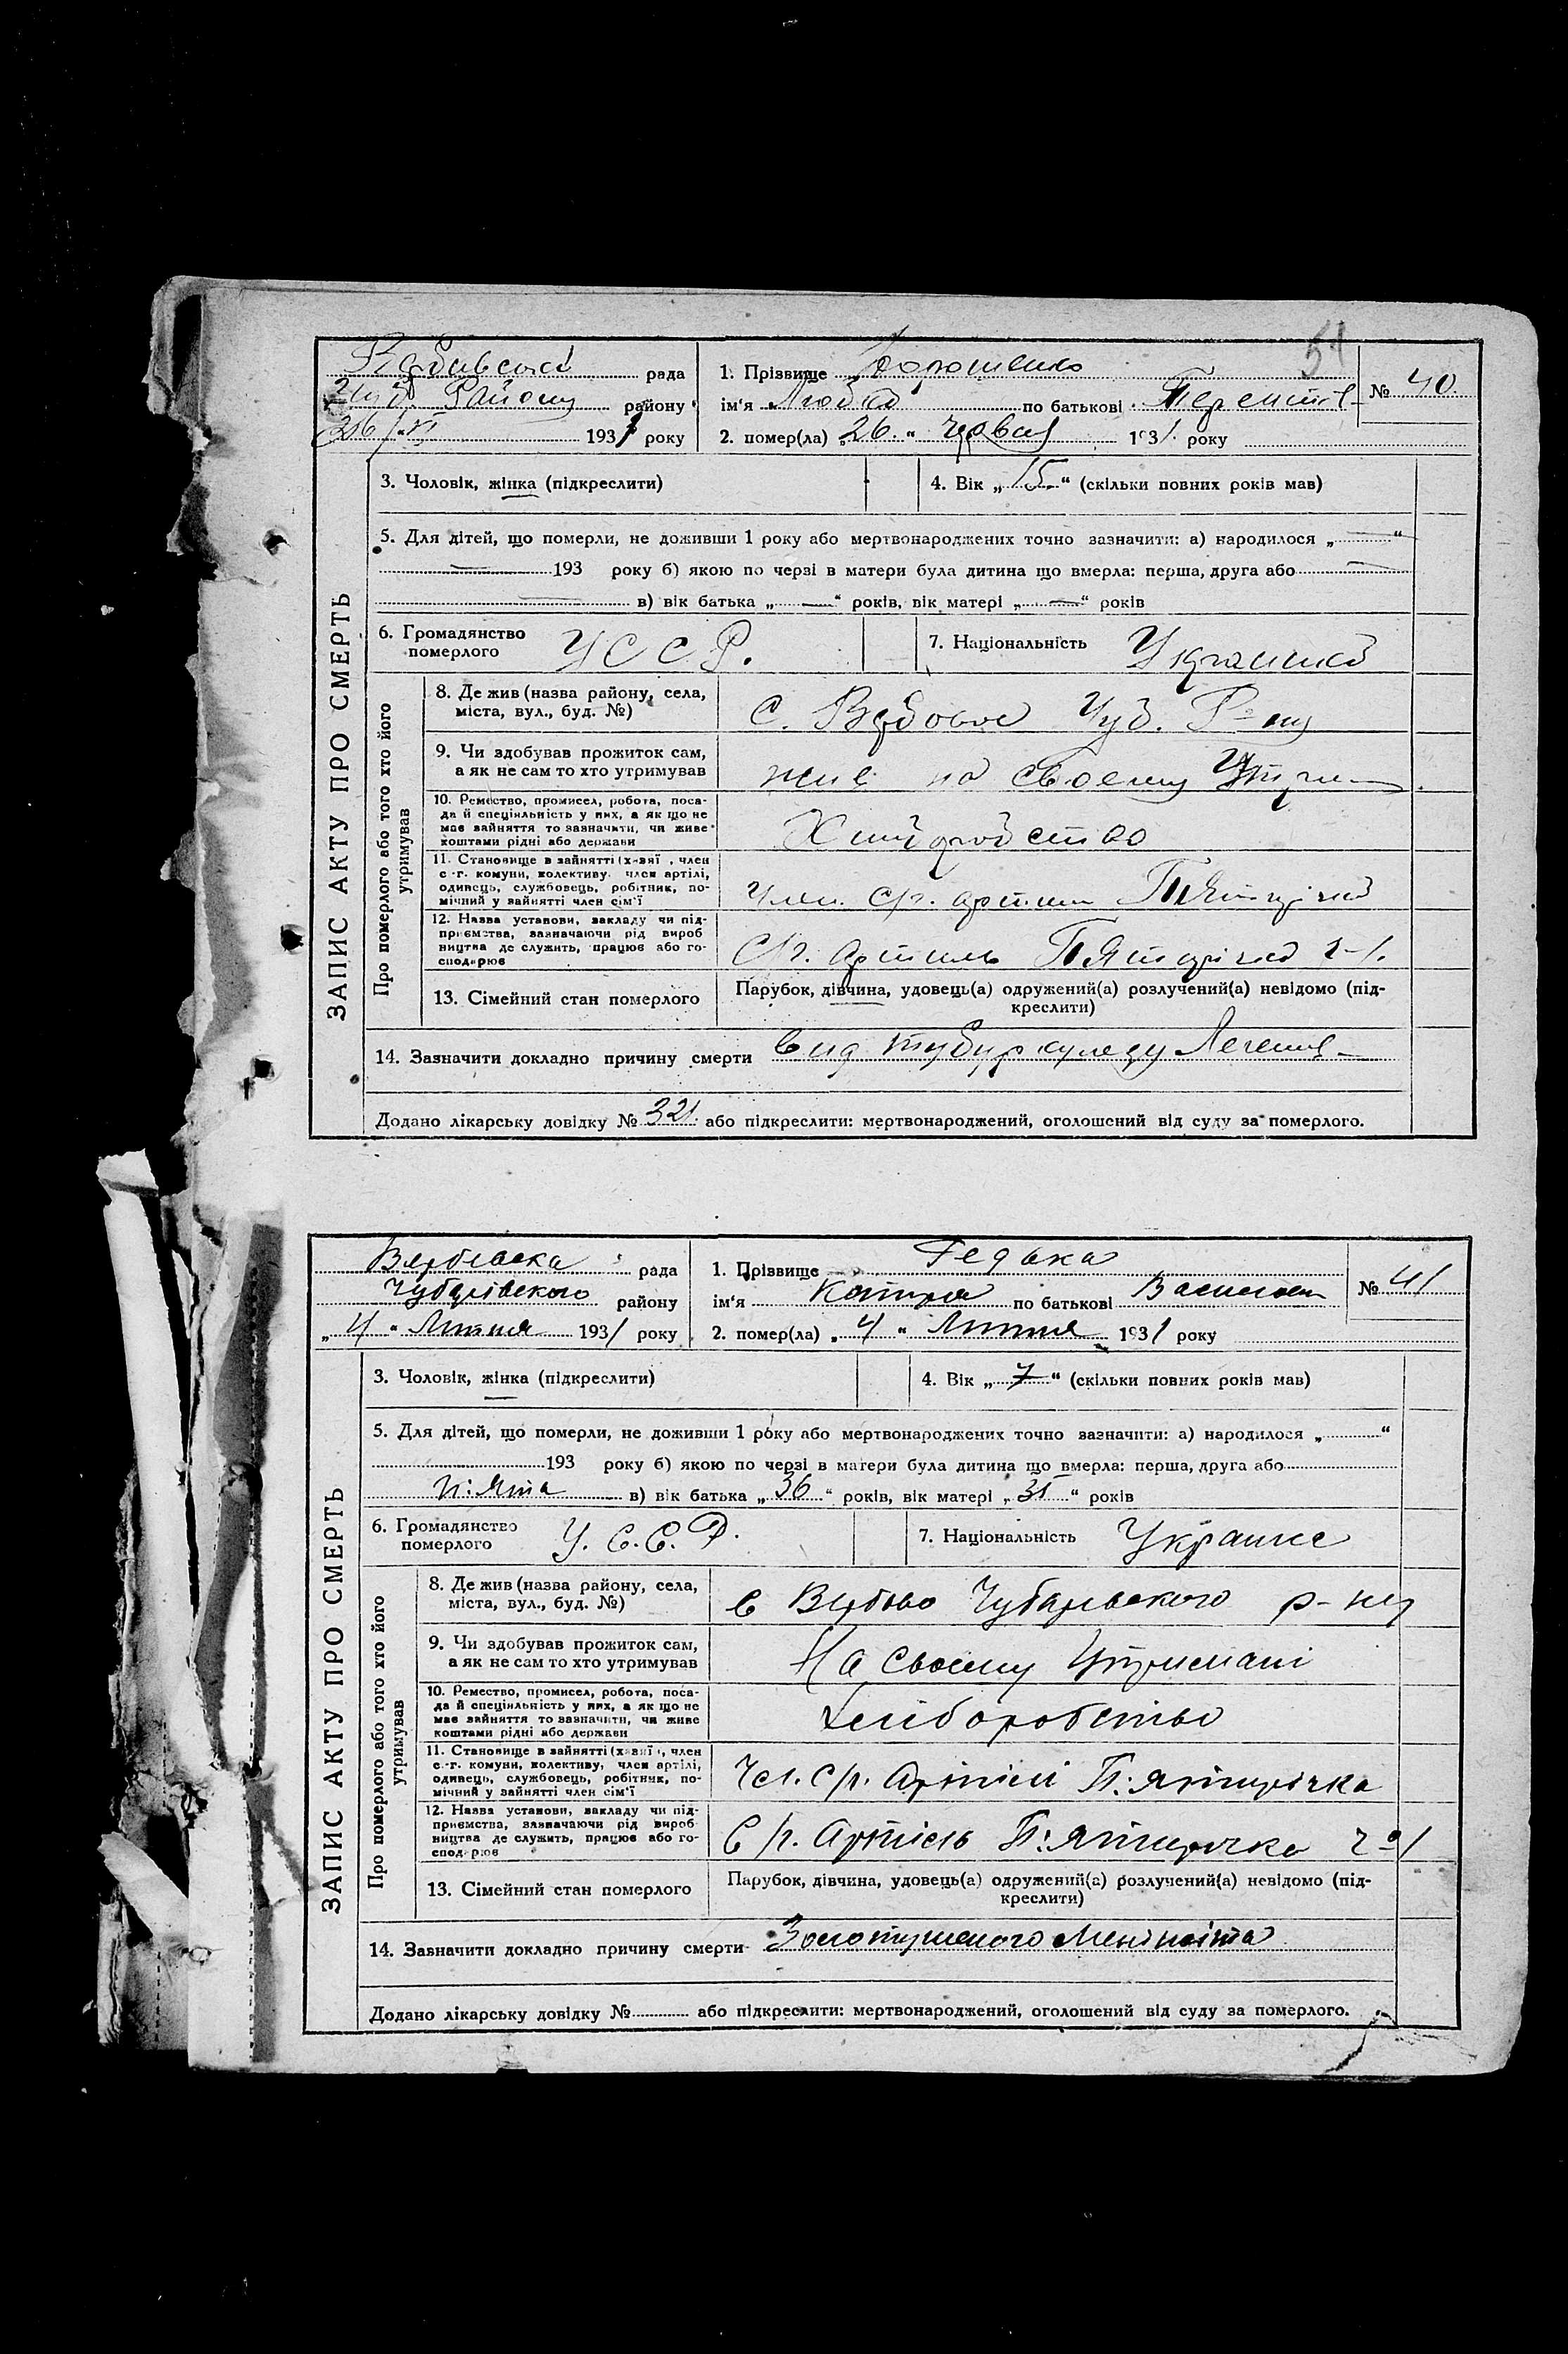 51
Вербівська рада
Чуб. Району району
26/VI 1931 року
1. Прізвище Дорошенко
ім'я Любка по батькові
№ 40.
2. помер(ла) „26." Червня 1931. року
ЗАПИС АКТУ ПРО СМЕРТЬ
3. Чоловік, жінка (підкреслити)
4. Вік „15" (скільки повних років мав)
5. Для дітей, що померли, не доживши 1 року або мертвонароджених точно зазначити: а) народилося „ — "
— 193 року б) якою по черзі в матери була дитина що вмерла: перша, друга або —
— в) вік батька „ — " років, вік матері „ — " років
6. Громадянство
померлого УССР.
7. Національність Українка
Про померлого або того хто його
утримував
8. Де жив (назва району, села,
міста, вул., буд. №)
с. Вербове Чуб. Р-ну
9. Чи здобував прожиток сам,
а як не сам то хто утримував
на своему
10. Ремество, промисел, робота, поса-
да й спеціяльність у них, а як що не
має зайняття то зазначити, чи живе
коштами рідні або держави
11. Становище в зайнятті (хазяї, член
с.-г. комуни, колективу, член артілі,
одинець, службовець, робітник, по-
мічний у зайнятті член сім'ї
Член. С/г. артили Пятирічка
12. Назва установи, закладу чи під-
приємства, зазначаючи рід вироб
ництва де служить, працює або го-
сподарює
С/г. Артиль Пятирічка
13. Сімейний стан померлого
Парубок, дівчина, удовець(а) одружений(а) розлучений(а) невідомо (під-
креслити)
14. Зазначити докладно причину смерти вид туберкулезу Легенів
Додано лікарську довідку № 321. або підкреслити: мертвонароджений, оголошений від суду за померлого.
Вербівська рада
Чубарівського району
„4" Липня 1931 року
1. Прізвище Гедька
ім'я Катря по батькові
№ 41
2. помер(ла) „4" Липня 1931 року
ЗАПИС АКТУ ПРО СМЕРТЬ
3. Чоловік, жінка (підкреслити)
4. Вік „7" (скільки повних років мав)
5. Для дітей, що померли, не доживши 1 року або мертвонароджених точно зазначити: а) народилося „ "
193 року б) якою по черзі в матери була дитина що вмерла: перша, друга або
п:ята в) вік батька „36" років, вік матері „ " років
6. Громадянство
померлого У.С.С.Р.
7. Національність
Про померлого або того хто його
утримував
8. Де жив (назва району, села,
міста, вул., буд. №)
Вербово Чубарівського р-ну
9. Чи здобував прожиток сам,
а як не сам то хто утримував
На своему Утримані
10. Ремество, промисел, робота, поса-
да й спеціяльність у них, а як що не
має зайняття то зазначити, чи живе
коштами рідні або держави
Хліборобство
11. Становище в зайнятті (хазяї, член
с.-г. комуни, колективу, член артілі,
одинець, службовець, робітник, по-
мічний у зайнятті член сім'ї
Чл. С/г. Артілі П:ятирічка
12. Назва установи, закладу чи під-
приємства, зазначаючи рід вироб
ництва де служить, працює або го-
сподарює
С/г. Артіль П:ятирічка
13. Сімейний стан померлого
Парубок, дівчина, удовець(а) одружений(а) розлучений(а) невідомо (під-
креслити)
14. Зазначити докладно причину смерти Золотушного Менінгіта
Додано лікарську довідку № або підкреслити: мертвонароджений, оголошений від суду за померлого.